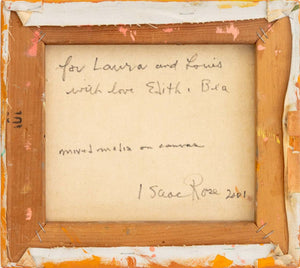 for Laura and Louis
with love Edith & Bea
mixed media on canvas
Isaac Rose 2001